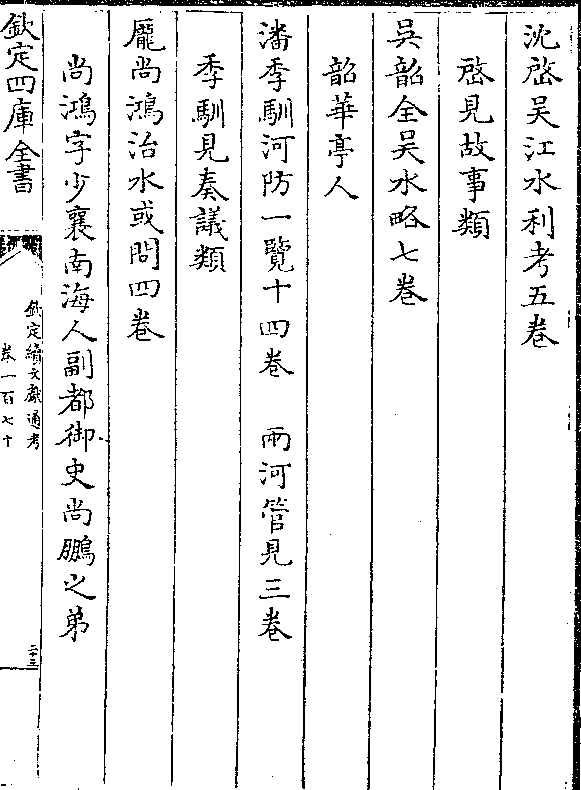 沈啓吴江水利考五卷
啓見故事類
吳韶全吴水略七卷
韶華亭人
潘季馴河防一覽十四卷　兩河管見三卷
季馴見奏議類
龐尚鴻治水或問四卷
尚鴻字少襄南海人副都御史尚鵬之弟
欽定四庫全書
欽定續文獻通考
卷一百七十
二十三